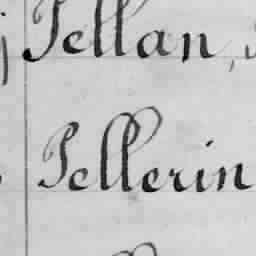 Pellan,
Pellerin